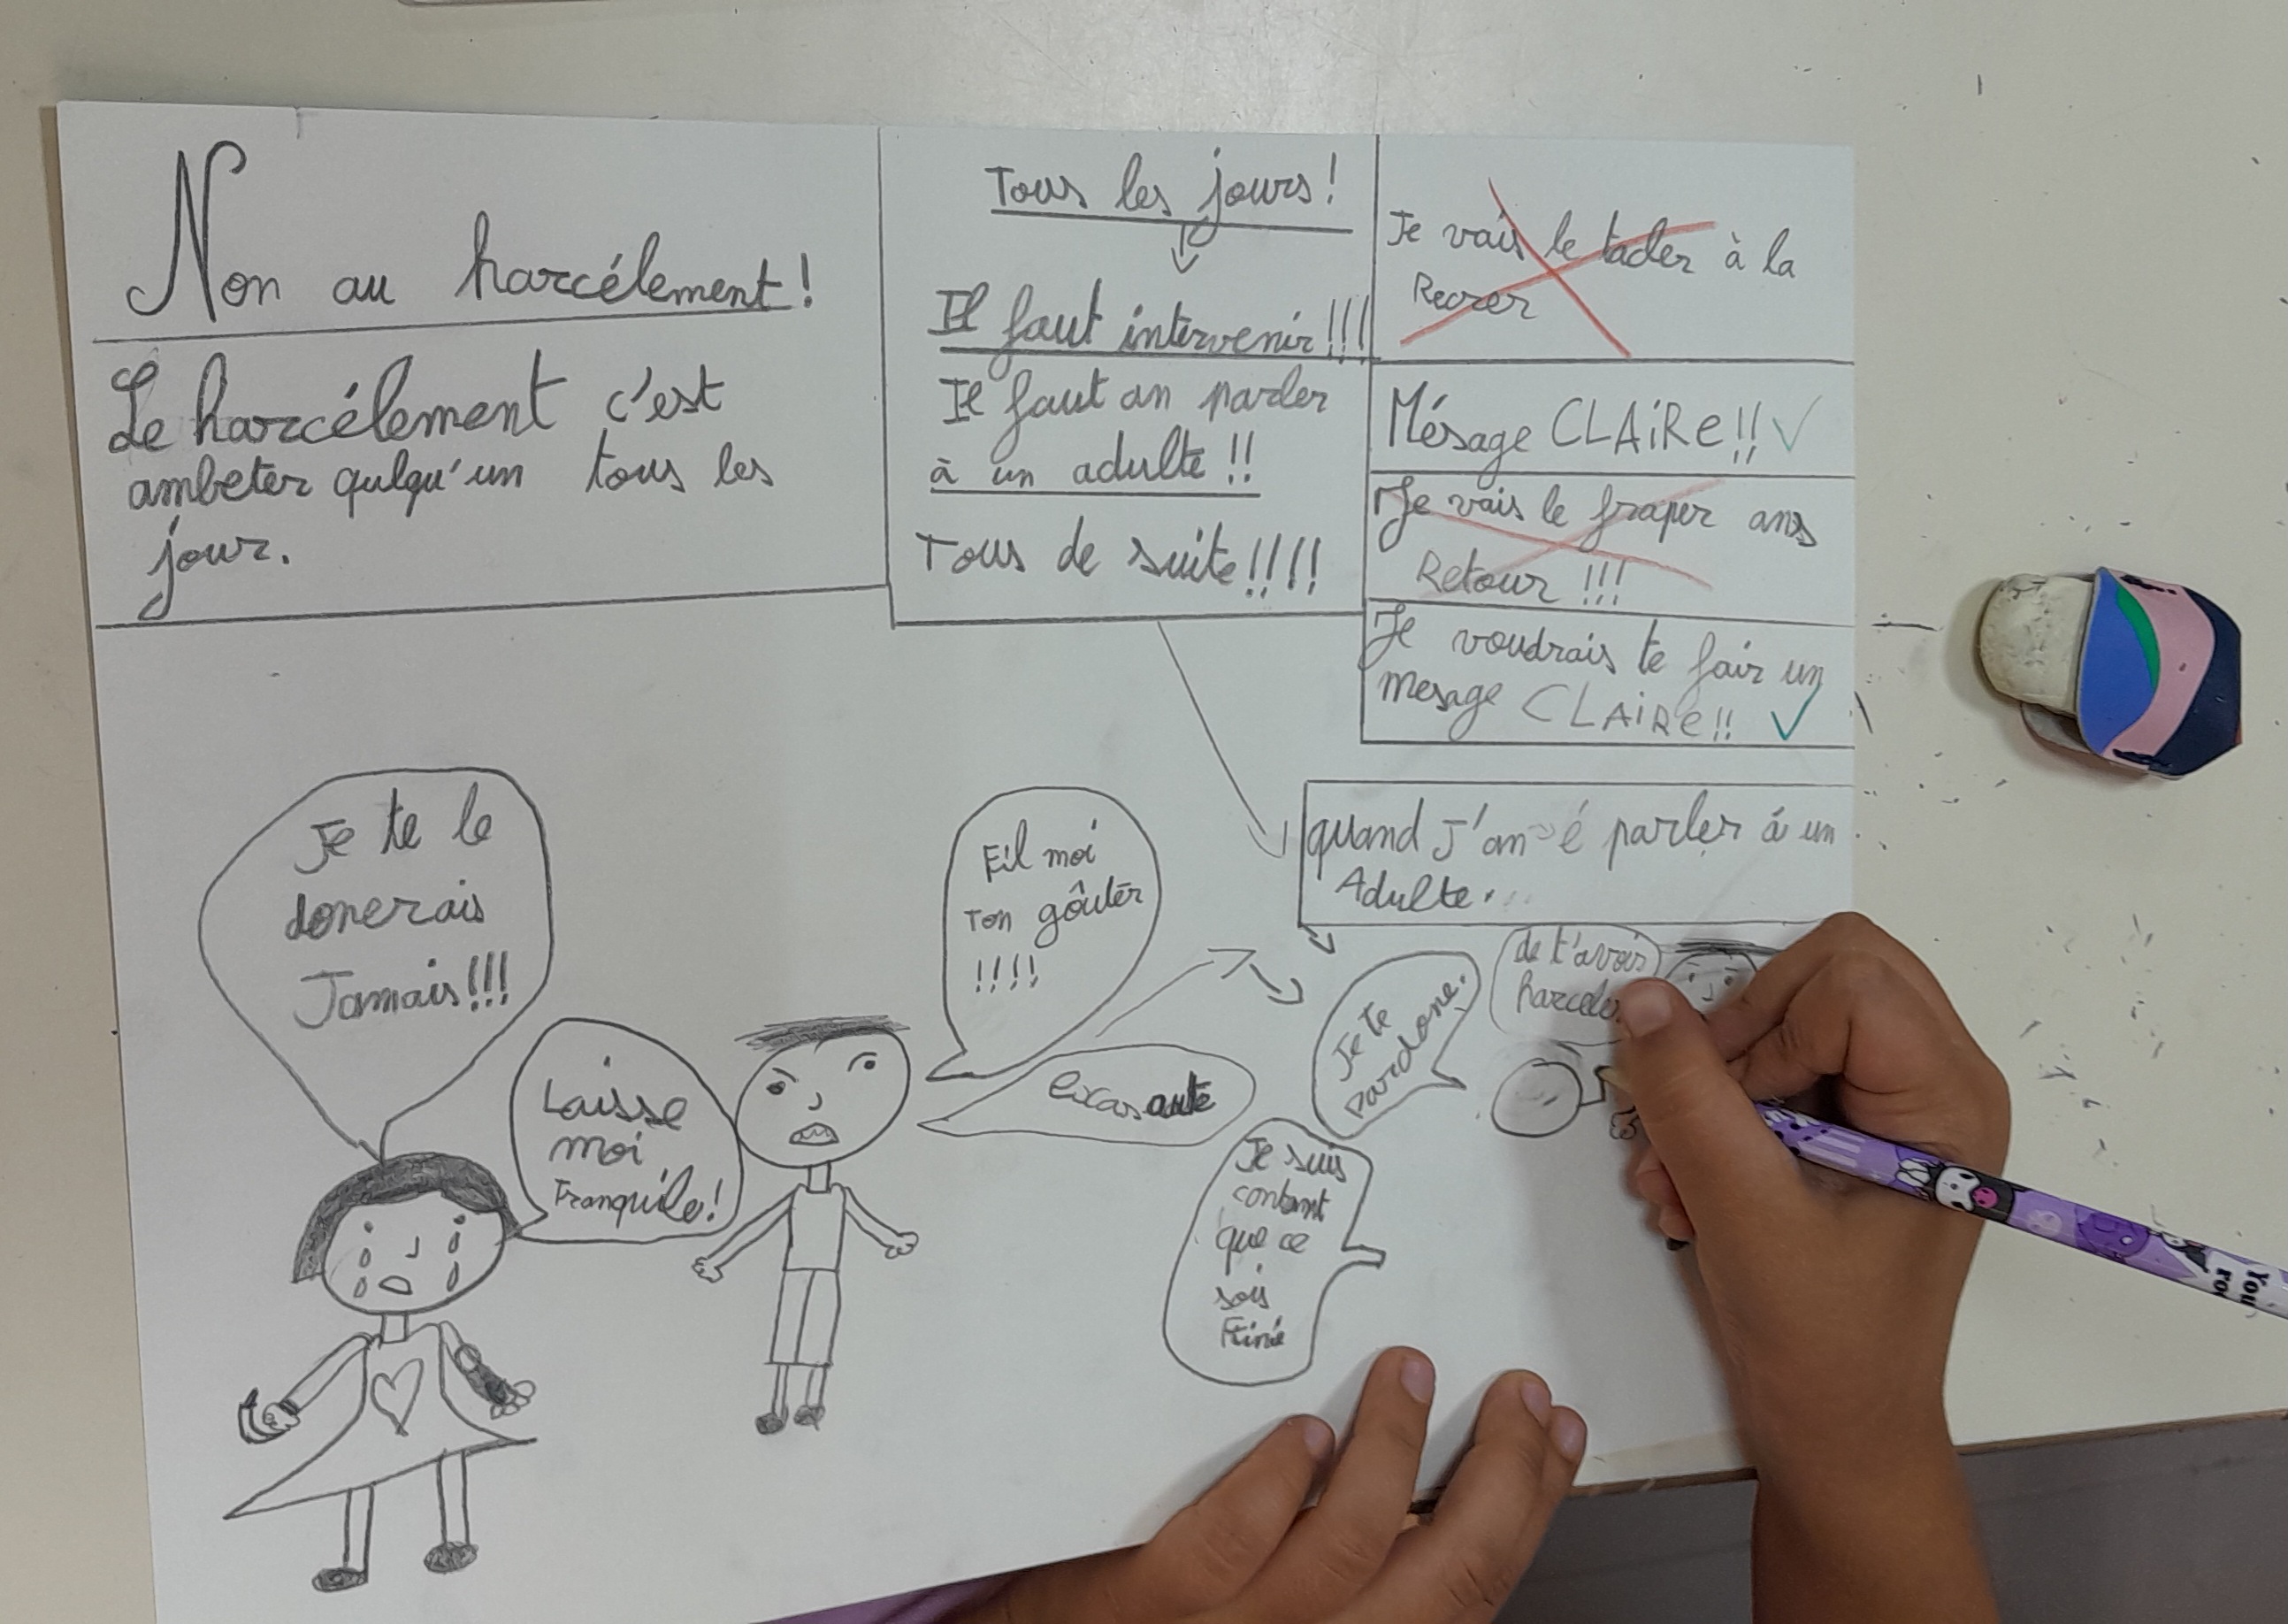 Non au harcélement!
Le harcélement c'est
ambeter qulqu'un tous les
jour.
Tous les jours!
Il faut intervenir!!!
Il faut an parler
à un adulte!!
Tous de suite!!!!
Je vais le tader à la
Recrer
Mésage CLAiRe!!
Je vais le fraper ans
Retour!!!
Je voudrais te fair un
mesage CLAiRe!!
quand J'an é parler á un
Adulte.
Je te le
donerais
Jamais!!!
Laisse
moi
Tranquile!
Fil moi
Ton goûter
!!!!
de t'avoir
harceler
Je te
pardone.
Je suis
contant
que ce
sois
Finie
You